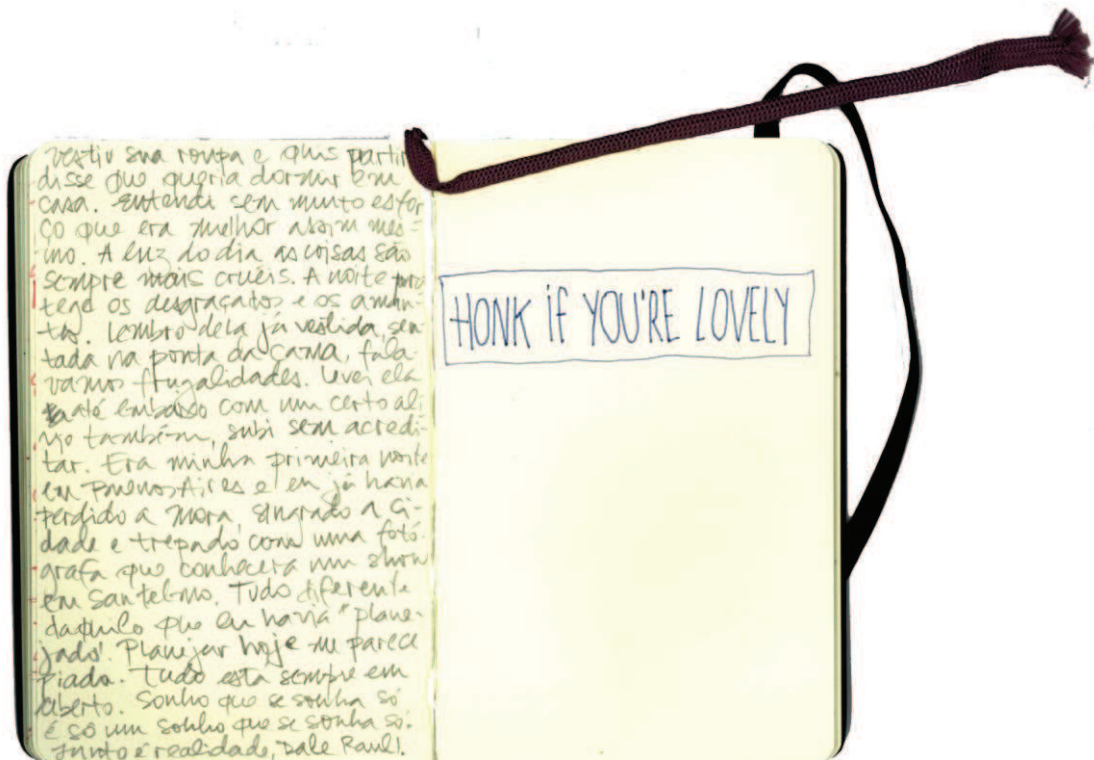 vestiu sua roupa e quis partir
disse que queria dormir em
casa. Entendi sem muito esfor
ço que era melhor assim mes-
mo. A luz do dia as coisas são
sempre mais cruéis. A noite pro
tege os desgraçados e os aman-
tes. Lembro dela já vestida, sen
tada na ponta da cama, fala-
vamos frugalidades. Levei ela
até embaixo com um certo alí
vio também, subi sem acredi-
tar. Era minha primeira noite
em Buenos Aires e eu já havia
perdido a mora, singrado a ci-
dade e trepado com uma fotó-
grafa que conhecera num show
em San telmo. Tudo diferente
daquilo que eu havia "plane-
jado'. Planejar hoje me parece
piada. Tudo esta sempre em
aberto. Sonho que se sonha só
é só um sonho que se sonha só.
Junto é realidade, Dale Raul!.
HONK iF YOU'RE LOVELY